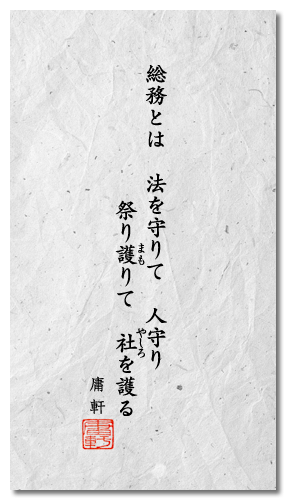 総務とは　法を守りて　人守り
祭り護りて　社を護る
まも
やしろ
庸軒
庸軒